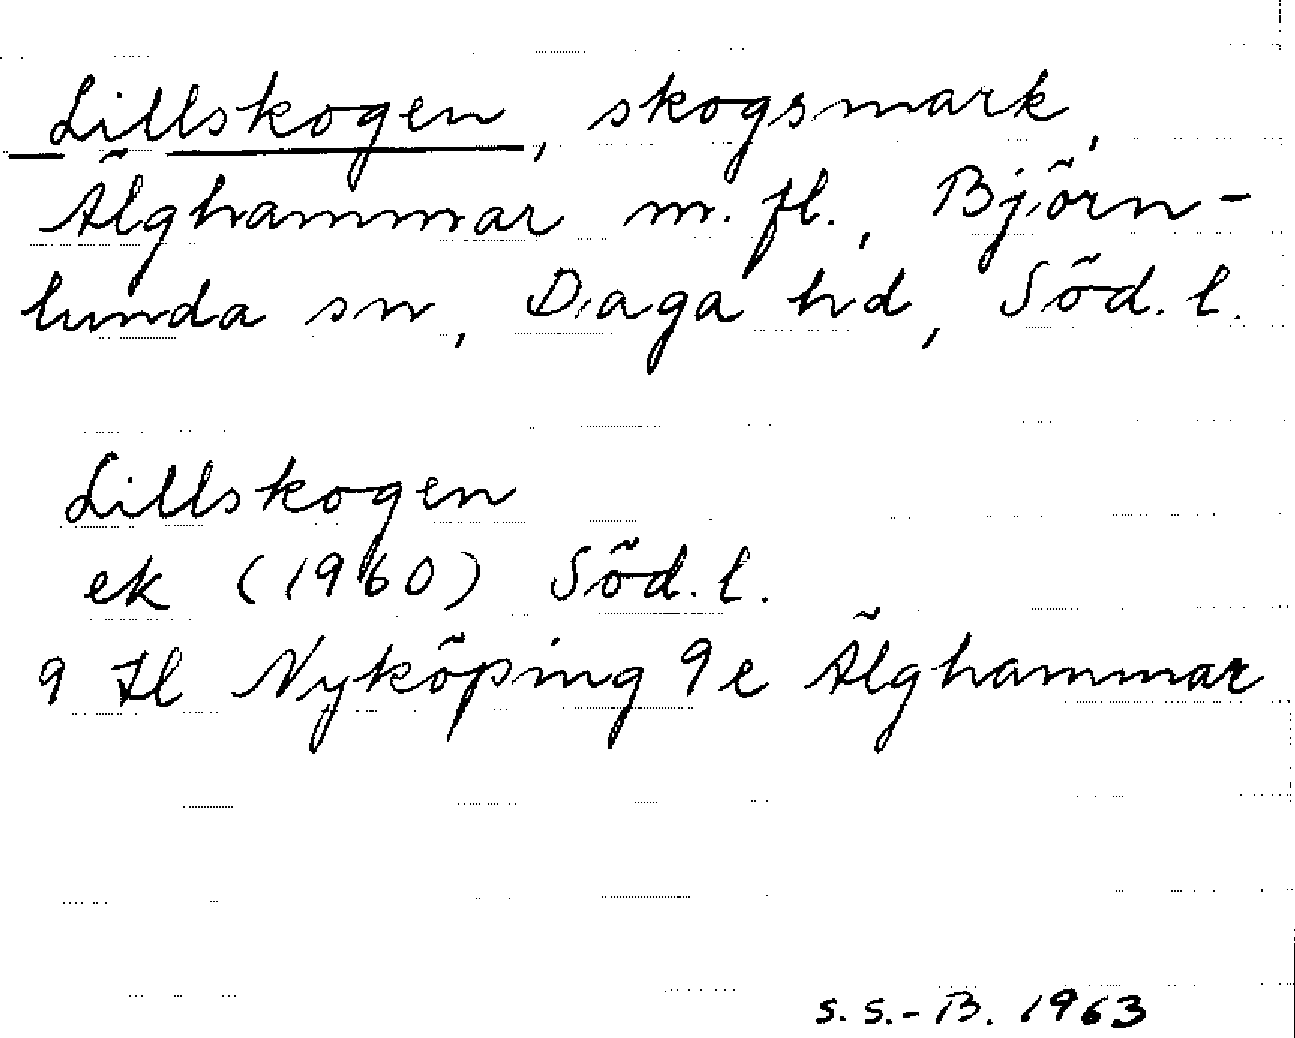 Lillskogen, skogsmark,
Älghammar m. fl., Björn-
lunda sn, Daga hd, Söd. l.
Lillskogen
ek (1960) Söd. l.
9 Il Nyköping 9e Älghammar
S. S.-B. 1963